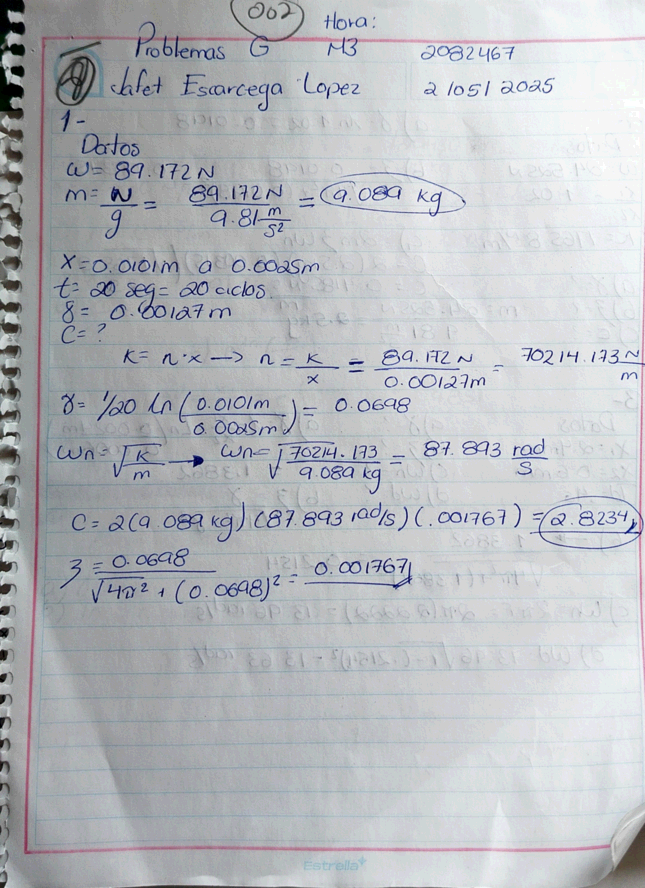 002 Hora:
Problemas G M3 2082467
Jafet Escarcega Lopez 2/05/2025
1-
Datos
ω= 89.172 N
m= N/g = 89.172 N / 9.81 m/s² = 9.089 kg
x=0.0101m a 0.0025m
t= 20 seg= 20 ciclos.
δ= 0.00127 m
C= ?
K= n·x → n= K/x = 89.172 N / 0.00127m = 70214.173 N/m
γ= 1/20 ln (0.0101m / 0.0025m) = 0.0698
ωn= √K/m → ωn= √70214.173 / 9.089 kg = 87.893 rad/s
C= 2(9.089 kg) (87.893 rad/s) (.001767) = 2.8234
ζ = 0.0698 / √4π² + (0.0698)² = 0.001767
Estrella